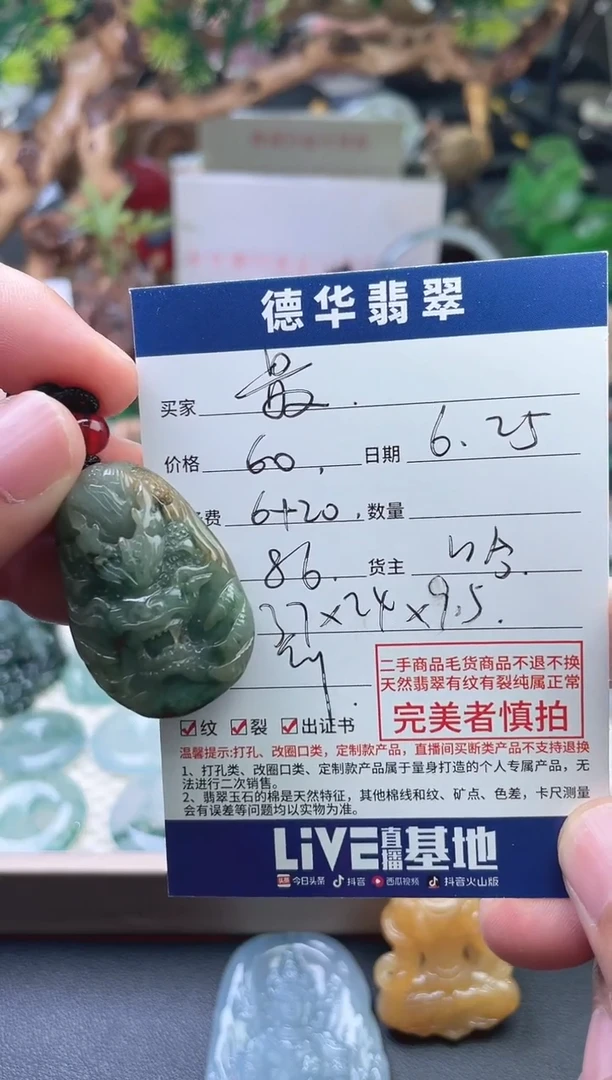 德华翡翠
买家
价格 60. 日期 6.25
费 6+20. 数量
86. 货主
37×24×9.5.
二手商品毛货商品不退不换
天然翡翠有纹有裂纯属正常
完美者慎拍
纹 裂 出证书
温馨提示:打孔、改圈口类，定制款产品，直播间买断类产品不支持退换
1、打孔类、改圈口类、定制款产品属于量身打造的个人专属产品，无
法进行二次销售。
2、翡翠玉石的棉是天然特征，其他棉线和纹、矿点、色差，卡尺测量
会有误差等问题均以实物为准。
LiVE直播基地
头条 今日头条 抖音 西瓜视频 抖音火山版